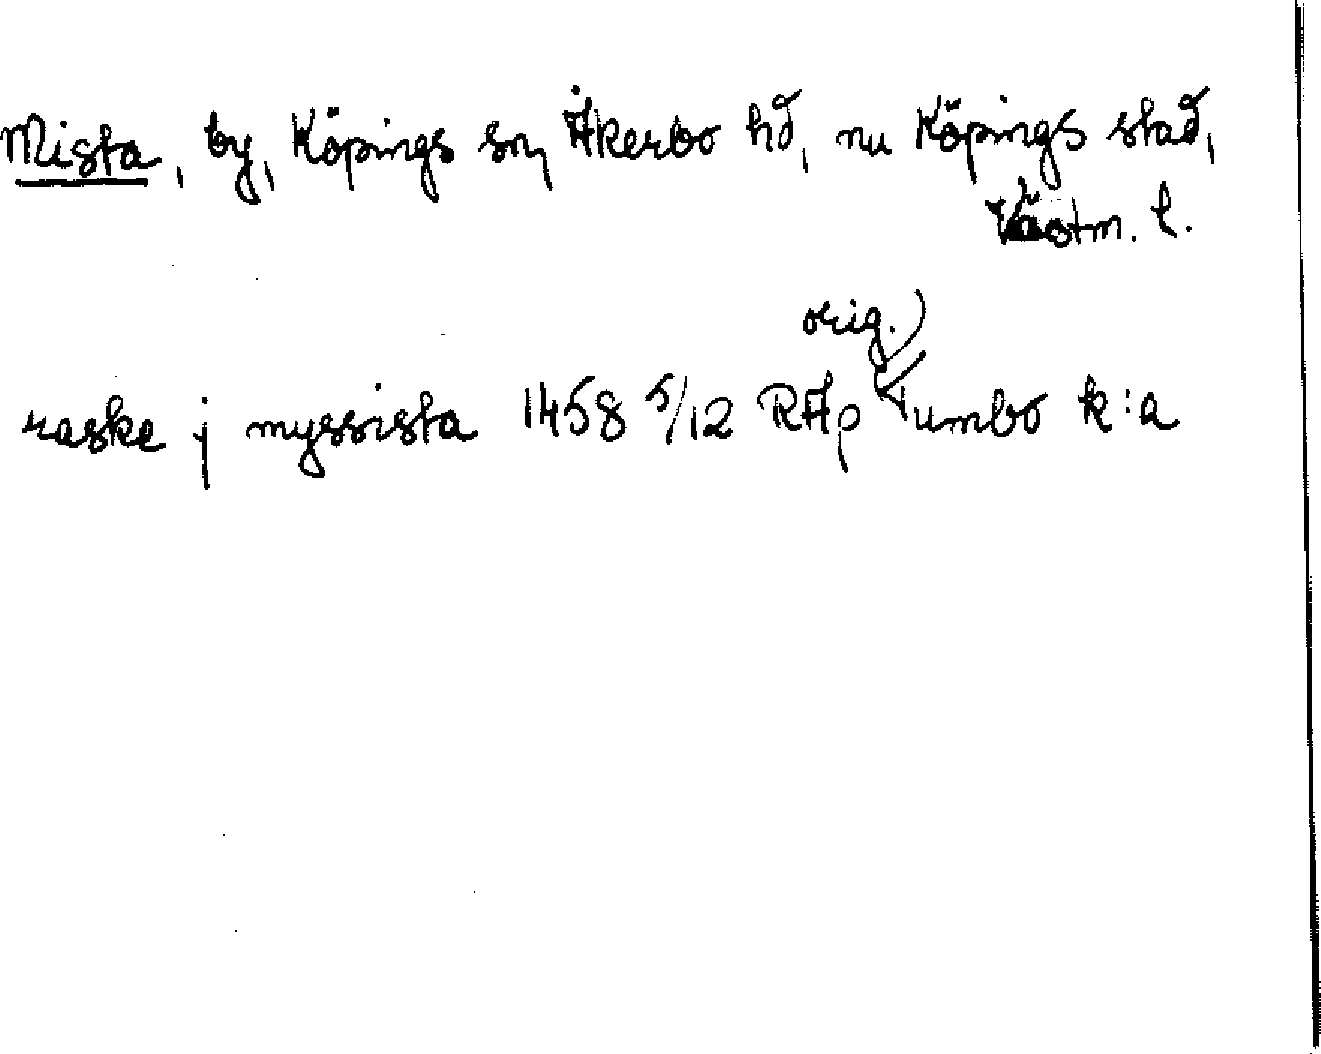 Mista, by, Köpings sn, Åkerbo hd, nu Köpings stad,
Västm. l.
orig.
raske j myssista 1458 5/12 RAp Tumbo k:a